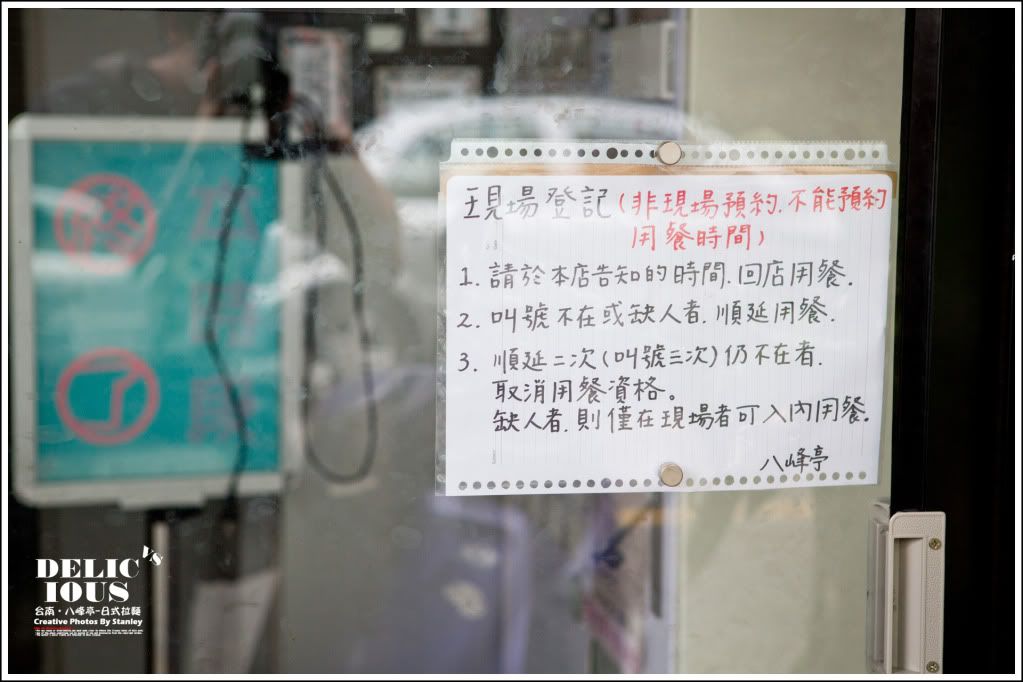 現場登記(非現場預約.不能預約
用餐時間)
1. 請於本店告知的時間.回店用餐.
2. 叫號不在或缺人者.順延用餐.
3. 順延二次(叫號三次)仍不在者.
取消用餐資格。
缺人者.則僅在現場者可入內用餐.
八峰亭
DELIC VS
IOUS
台南・八峰亭-日式拉麵
Creative Photos By Stanley
了